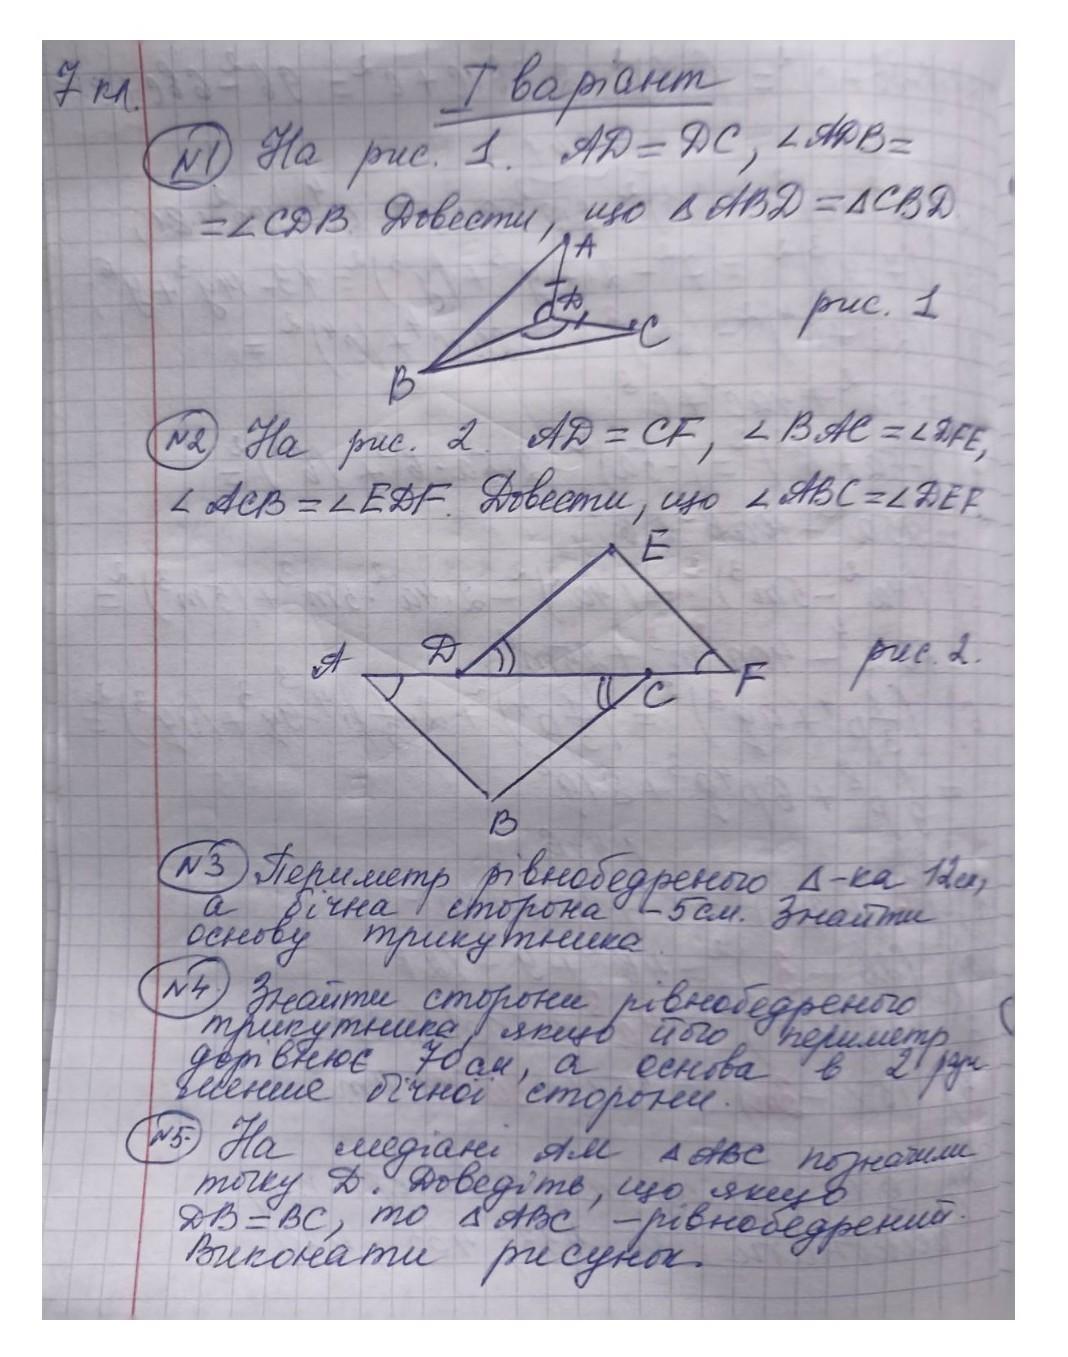 7 кл.
I варіант
N1 На рис. 1. AD = DC, ∠ADB =
= ∠CDB. Довести, що ΔABD = ΔCBD
A
D
C
B
рис. 1
N2 На рис. 2. AD = CF, ∠BAC = ∠DFE,
∠ACB = ∠EDF. Довести, що ∠ABC = ∠DEF.
E
A
D
C
F
B
рис. 2.
N3 Периметр рівнобедреного Δ-ка 12см,
а бічна сторона – 5см. Знайти
основу трикутника.
N4 Знайти сторони рівнобедреного
трикутника, якщо його периметр
дорівнює 70см, а основа в 2 рази
менше бічної сторони.
N5. На медіані AM ΔABC позначили
точку D. Доведіть, що якщо
DB = BC, то ΔABC – рівнобедрений.
Виконати рисунок.